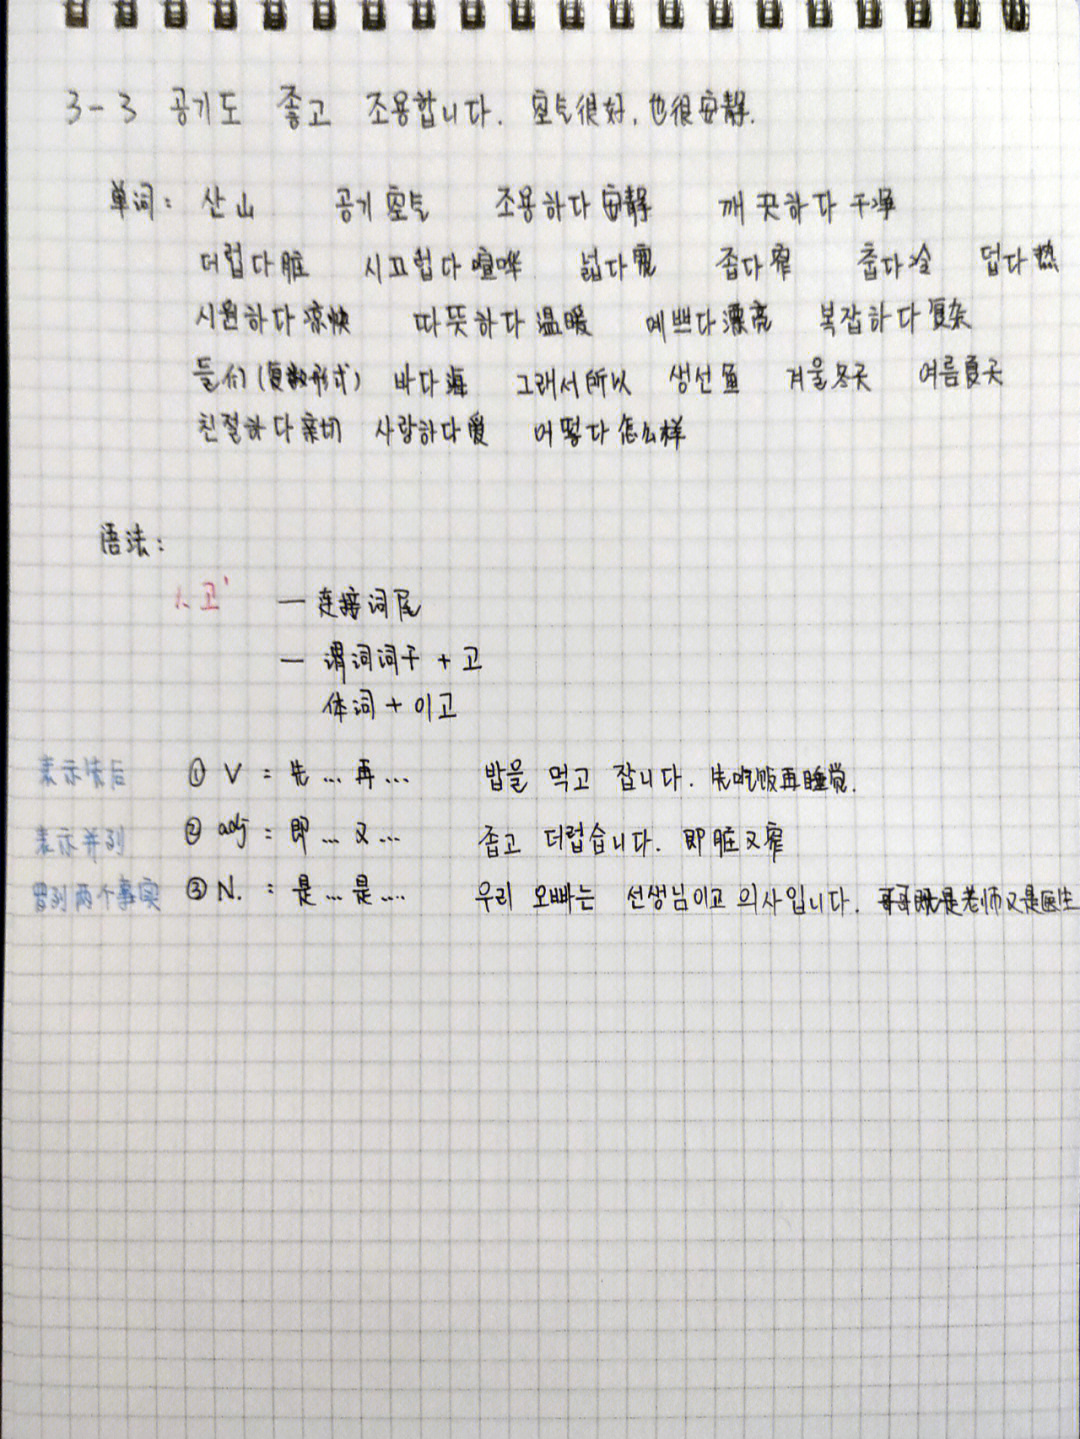 3-3 공기도 좋고 조용합니다. 空气很好,也很安静.
单词: 산 山 공기 空气 조용하다 安静 깨끗하다 干净
더럽다 脏 시끄럽다 喧哗 넓다 宽 좁다 窄 춥다 冷 덥다 热
시원하다 凉快 따뜻하다 温暖 예쁘다 漂亮 복잡하다 复杂
들 们(复数形式) 바다 海 그래서 所以 생선 鱼 겨울 冬天 여름 夏天
친절하다 亲切 사랑하다 爱 어떻다 怎么样
语法:
1. 고' — 连接词尾
— 谓词词干 + 고
体词 + 이고
表示先后 ① V : 先...再... 밥을 먹고 잡니다. 先吃饭再睡觉.
表示并列 ② adj : 即...又... 좁고 더럽습니다. 即脏又窄
罗列两个事实 ③ N. : 是...是... 우리 오빠는 선생님이고 의사입니다. 哥哥既是老师又是医生